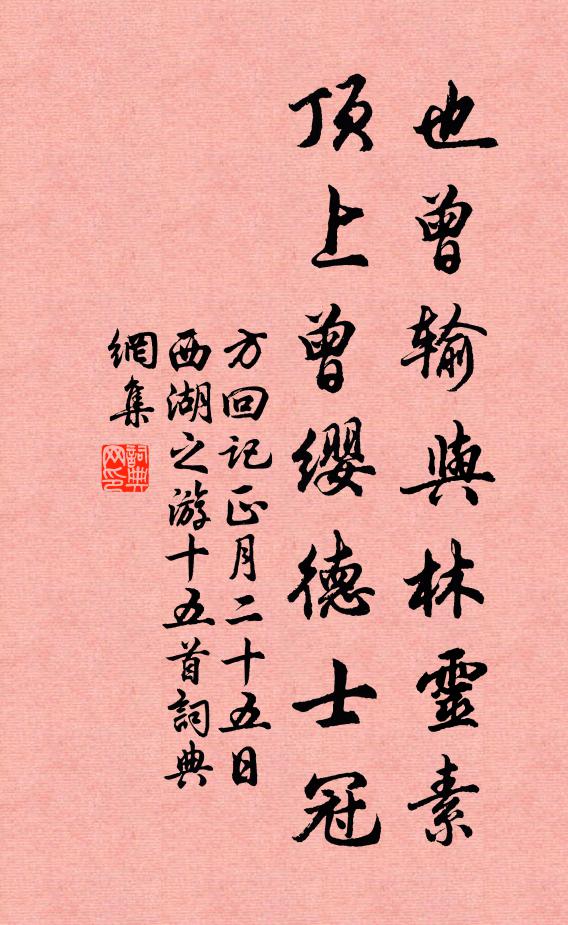 也曾输與林靈素
頂上曾缨德士冠
方回记正月二十五日
西湖之游十五首詞典
網集
詞典
网印